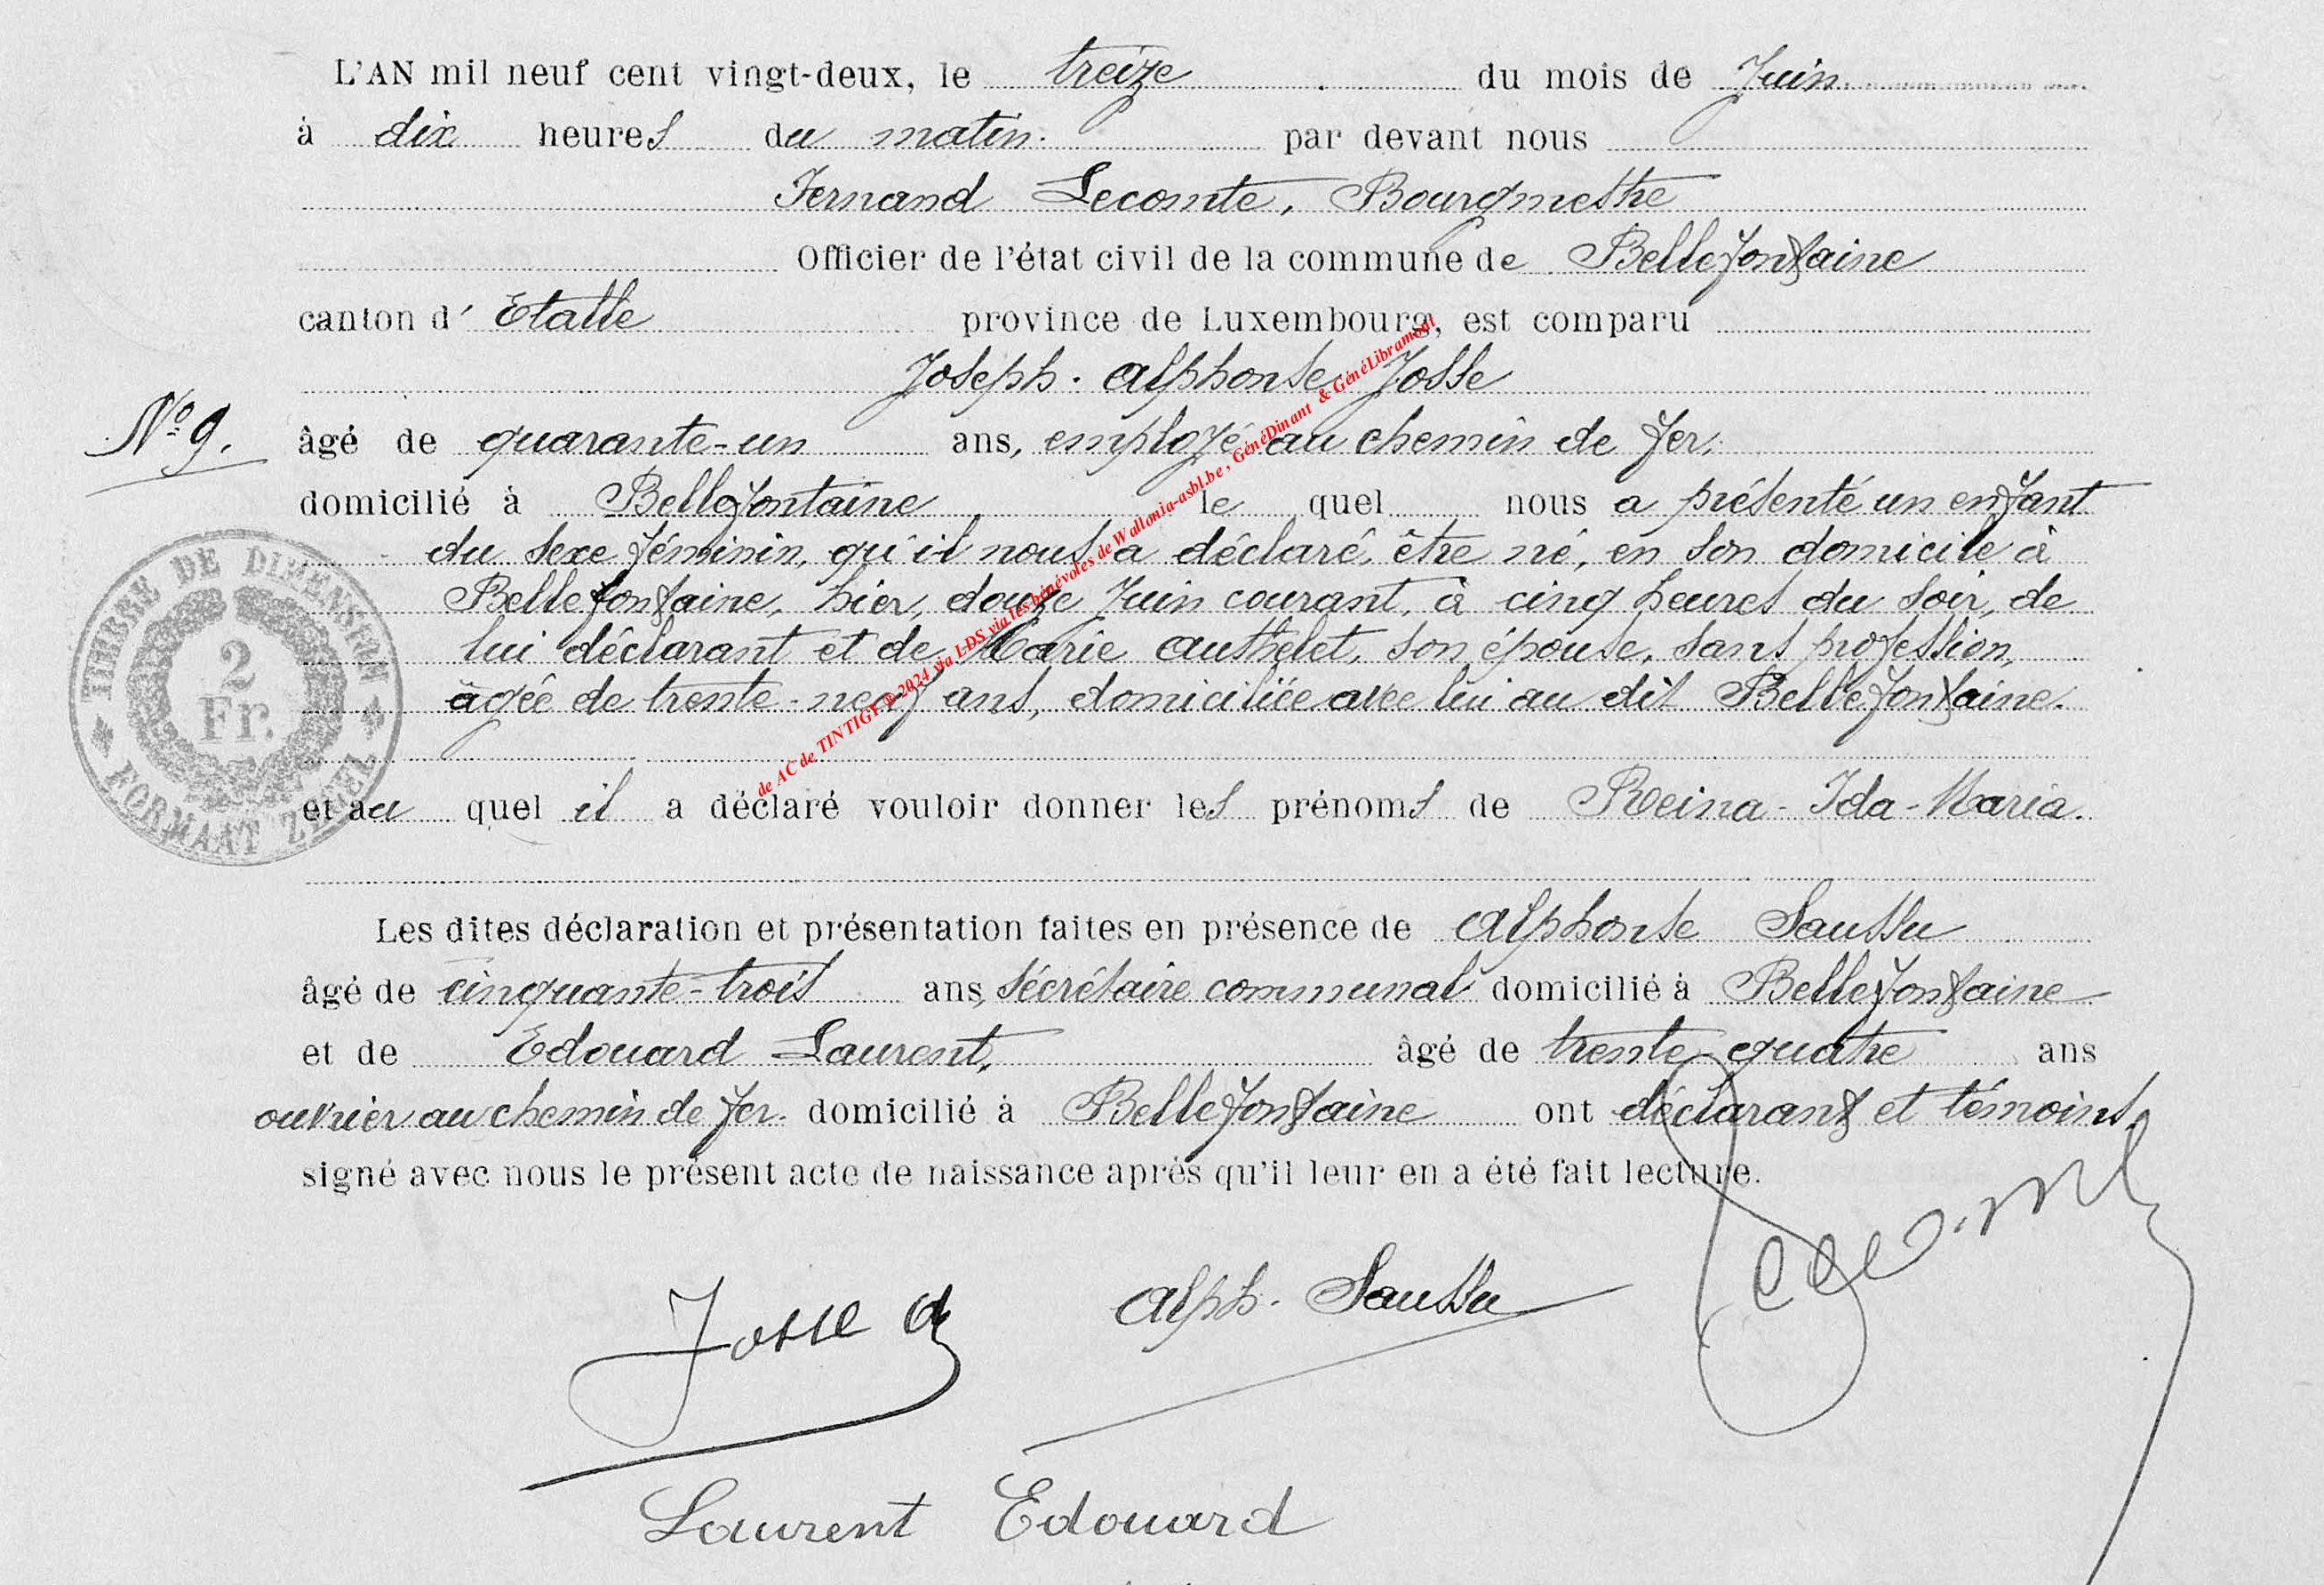 L'AN mil neuf cent vingt-deux, le treize du mois de Juin
à dix heures du matin. par devant nous
Fernand Lecomte, Bourgmestre
Officier de l'état civil de la commune de Bellefontaine
canton d' Etalle province de Luxembourg, est comparu
Joseph. Alphonse Josse
N° 9.
âgé de quarante-un ans, employé au chemin de fer,
domicilié à Bellefontaine le quel nous a présenté un enfant
du sexe féminin, qu'il nous a déclaré, être né, en son domicile à
Bellefontaine, hier, douze Juin courant, à cinq heures du soir, de
lui déclarant et de Marie Authelet, son épouse, sans profession,
âgée de trente-neuf ans, domiciliée avec lui au dit Bellefontaine.
et au quel il a déclaré vouloir donner les prénoms de Reina-Ida-Maria.
TIMBRE DE DIMENSION
2
Fr.
FORMAAT ZEGEL
Les dites déclaration et présentation faites en présence de Alphonse Saussu
âgé de cinquante-trois ans, sécrétaire communal domicilié à Bellefontaine
et de Edouard Laurent, âgé de trente-quatre ans
ouvrier au chemin de fer. domicilié à Bellefontaine ont déclarant et témoins,
signé avec nous le présent acte de naissance après qu'il leur en a été fait lecture.
Josse A
Alph. Saussu
Lecomte
Laurent Edouard
de AC de TINTIGY @ 2024 via LDS via les bénévoles de Wallonia-asbl.be, GénéDinant & GénéLibramont